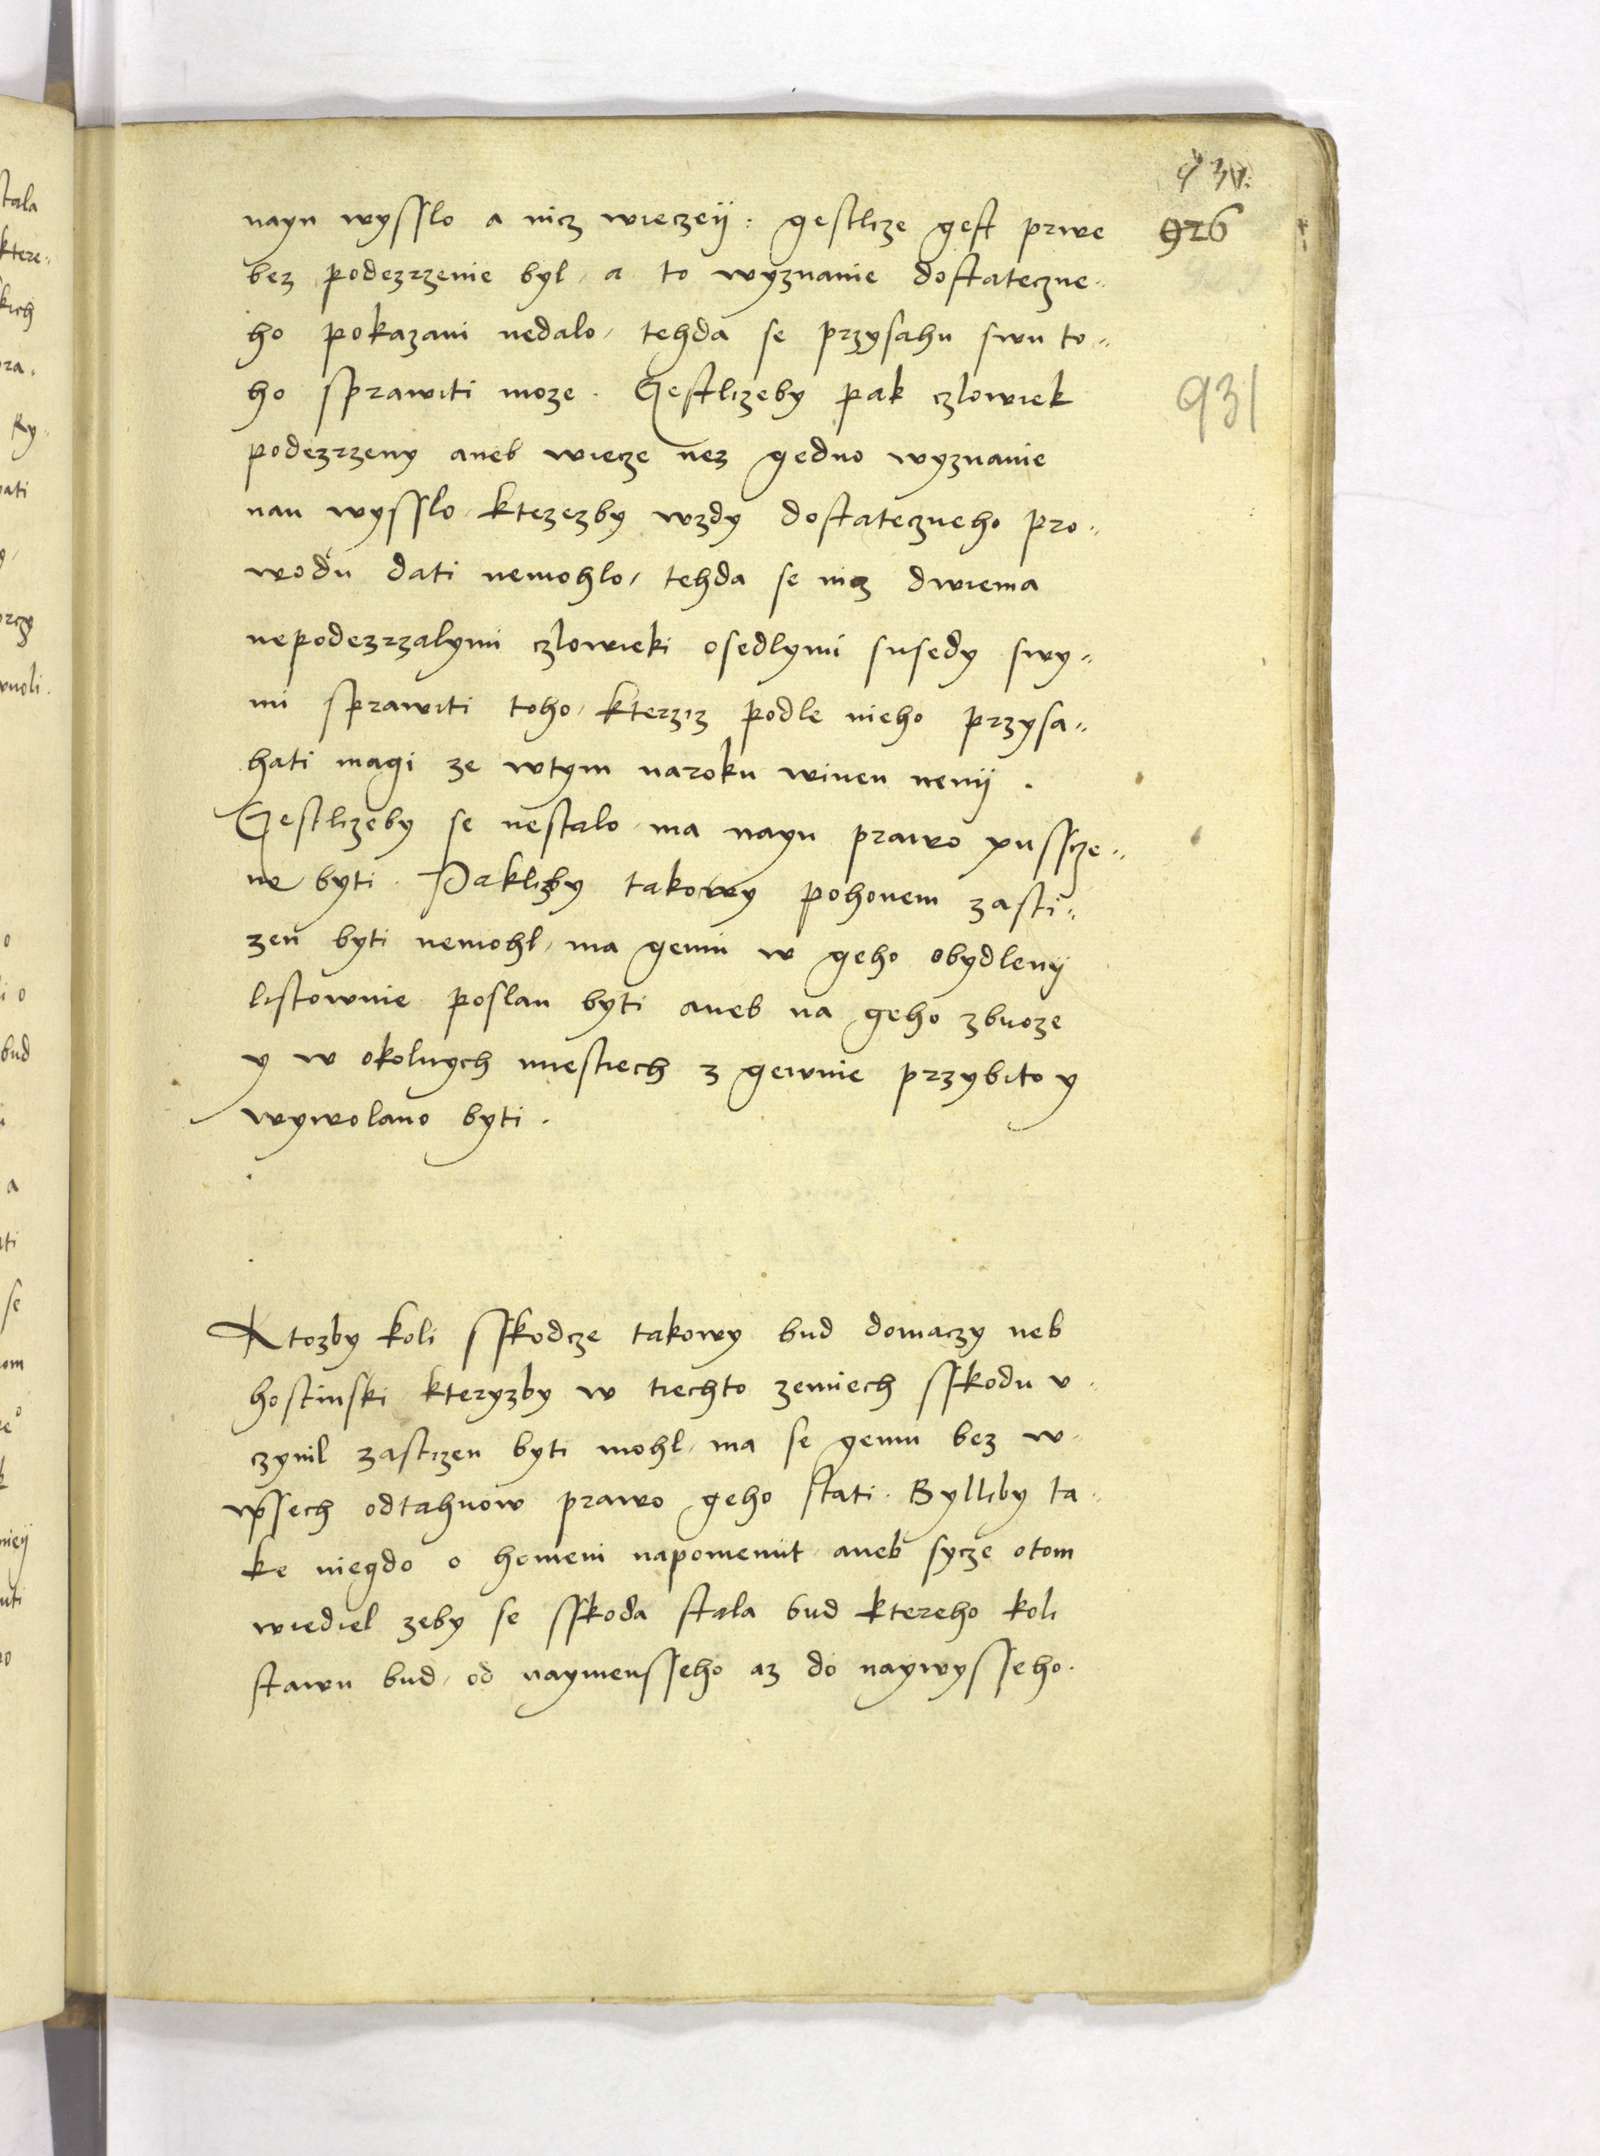 930.
nayn wysslo a nicz wieczeij : gestlize gest prwe
926
bez podezrzenie byl, a to wyznanie dostateczne-
ho pokazani nedalo, tehda se przysahu swu to-
ho sprawiti moze. Gestlizeby pak czlowiek
931
podezrzeny aneb wiecze nez gedno wyznanie
nan wysslo, ktezezby wzdy dostateczneho pro-
wodu dati nemohlo, tehda se nicz dwiema
nepodezrzalymi czlowieki osedlymi susedy swy-
mi sprawiti toho, kterziz podle nieho przysa-
hati magi ze wtym naroku winen nenij.
Gestlizeby se nestalo, ma nayn prawo pusscze-
ne byti. Paklizby takowy pohonem zasti-
zen byti nemohl, ma gemu w geho obydlenij
listownie poslan byti aneb na geho zbuoze
y w okolnych miestiech z gewnie przybito y
wywolano byti.
Ktozby koli sskodcze takowy bud domaczy neb
hostinski kteryzby w tiechto zemiech sskodu v-
czynil zastizen byti mohl, ma se gemu bez w-
wssech odtahuow prawo geho stati. Bylliby ta-
ke niegdo o homeni napomenut aneb sycze otom
wiediel zeby se sskoda stala bud ktereho koli
stawu bud, od naymensseho az do naywysseho.